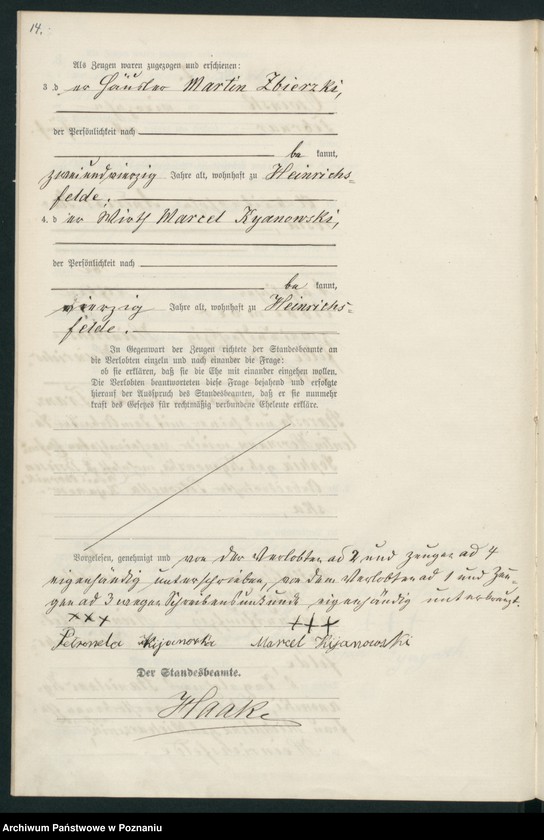 14.
Als Zeugen waren zugezogen und erschienen:
3. der Häusler Martin Zbierzki,
der Persönlichkeit nach
be kannt,
zweiundvierzig Jahre alt, wohnhaft zu Heinrichs-
felde.
4. der Wirth Marcel Kyanowski,
der Persönlichkeit nach
be kannt,
vierzig Jahre alt, wohnhaft zu Heinrichs-
felde.
In Gegenwart der Zeugen richtete der Standesbeamte an
die Verlobten einzeln und nach einander die Frage:
ob sie erklären, daß sie die Ehe mit einander eingehen wollen.
Die Verlobten beantworteten diese Frage bejahend und erfolgte
hierauf der Ausspruch des Standesbeamten, daß er sie nunmehr
kraft des Gesetzes für rechtmäßig verbundene Eheleute erkläre.
Vorgelesen, genehmigt und von der Verlobten ad 2 und Zeugen ad 4
eigenhändig unterschrieben, von dem Verlobten ad 1 und Zeu-
gen ad 3 wegen Schreibensunkunde eigenhändig unterkreuzt.
××× +++
Petronela Kijanovka Marcel Kijanowski
Der Standesbeamte.
Haake
Archiwum Państwowe w Poznaniu